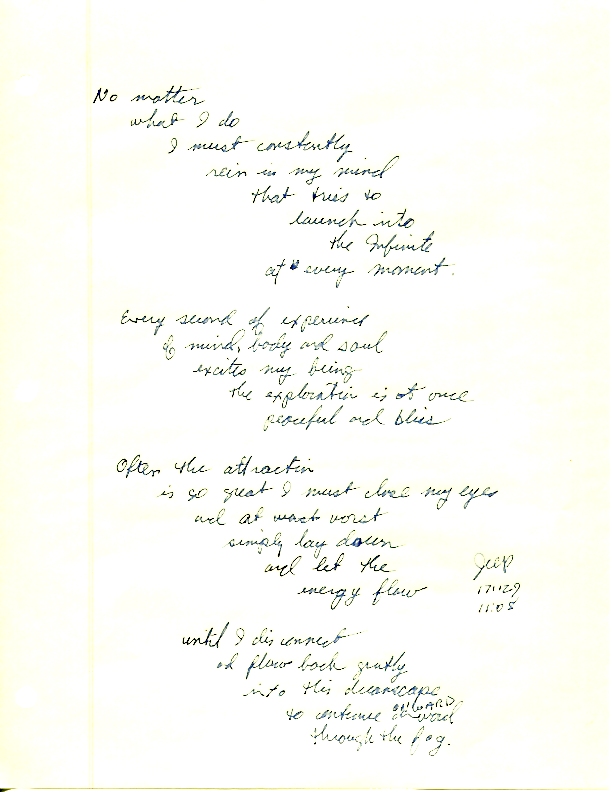 No matter
what I do
I must constantly
rein in my mind
that tries to
launch into
the Infinite
at every moment.
Every second of experience
of mind, body and soul
excites my being
the exploration is at once
peaceful and bliss
Often the attraction
is so great I must close my eyes
and at worst
simply lay down
and let the
energy flow
171129
11:08
until I disconnect
and flow back gently
into this dreamscape
to continue onward
ONWARD
through the fog.